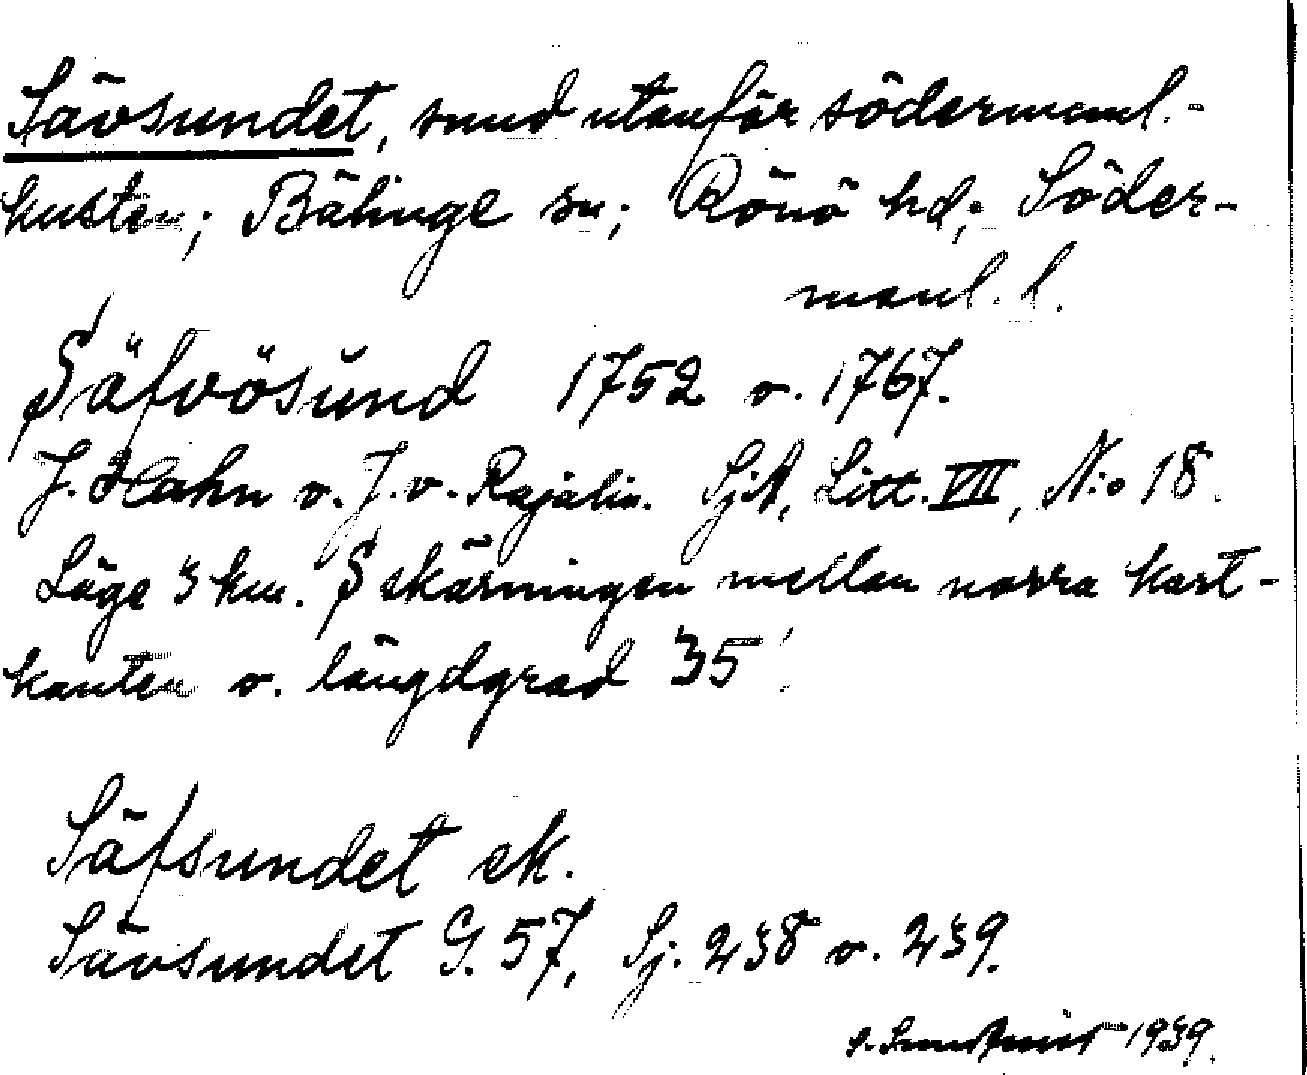 Sävsundet, sund utanför södermanl.-
kusten; Bälinge sn; Rönö hd; Söder-
manl. l.
Säfvösund 1752 o. 1767.
J. Hahn o. J. v. Rajalin. SjA, Litt. VII, N:o 18.
Läge 3 km. S skärningen mellan norra kart-
kanten o. längdgrad 35'
Säfsundet ek.
Sävsundet G. 57, Sj. 238 o. 239.
1939.